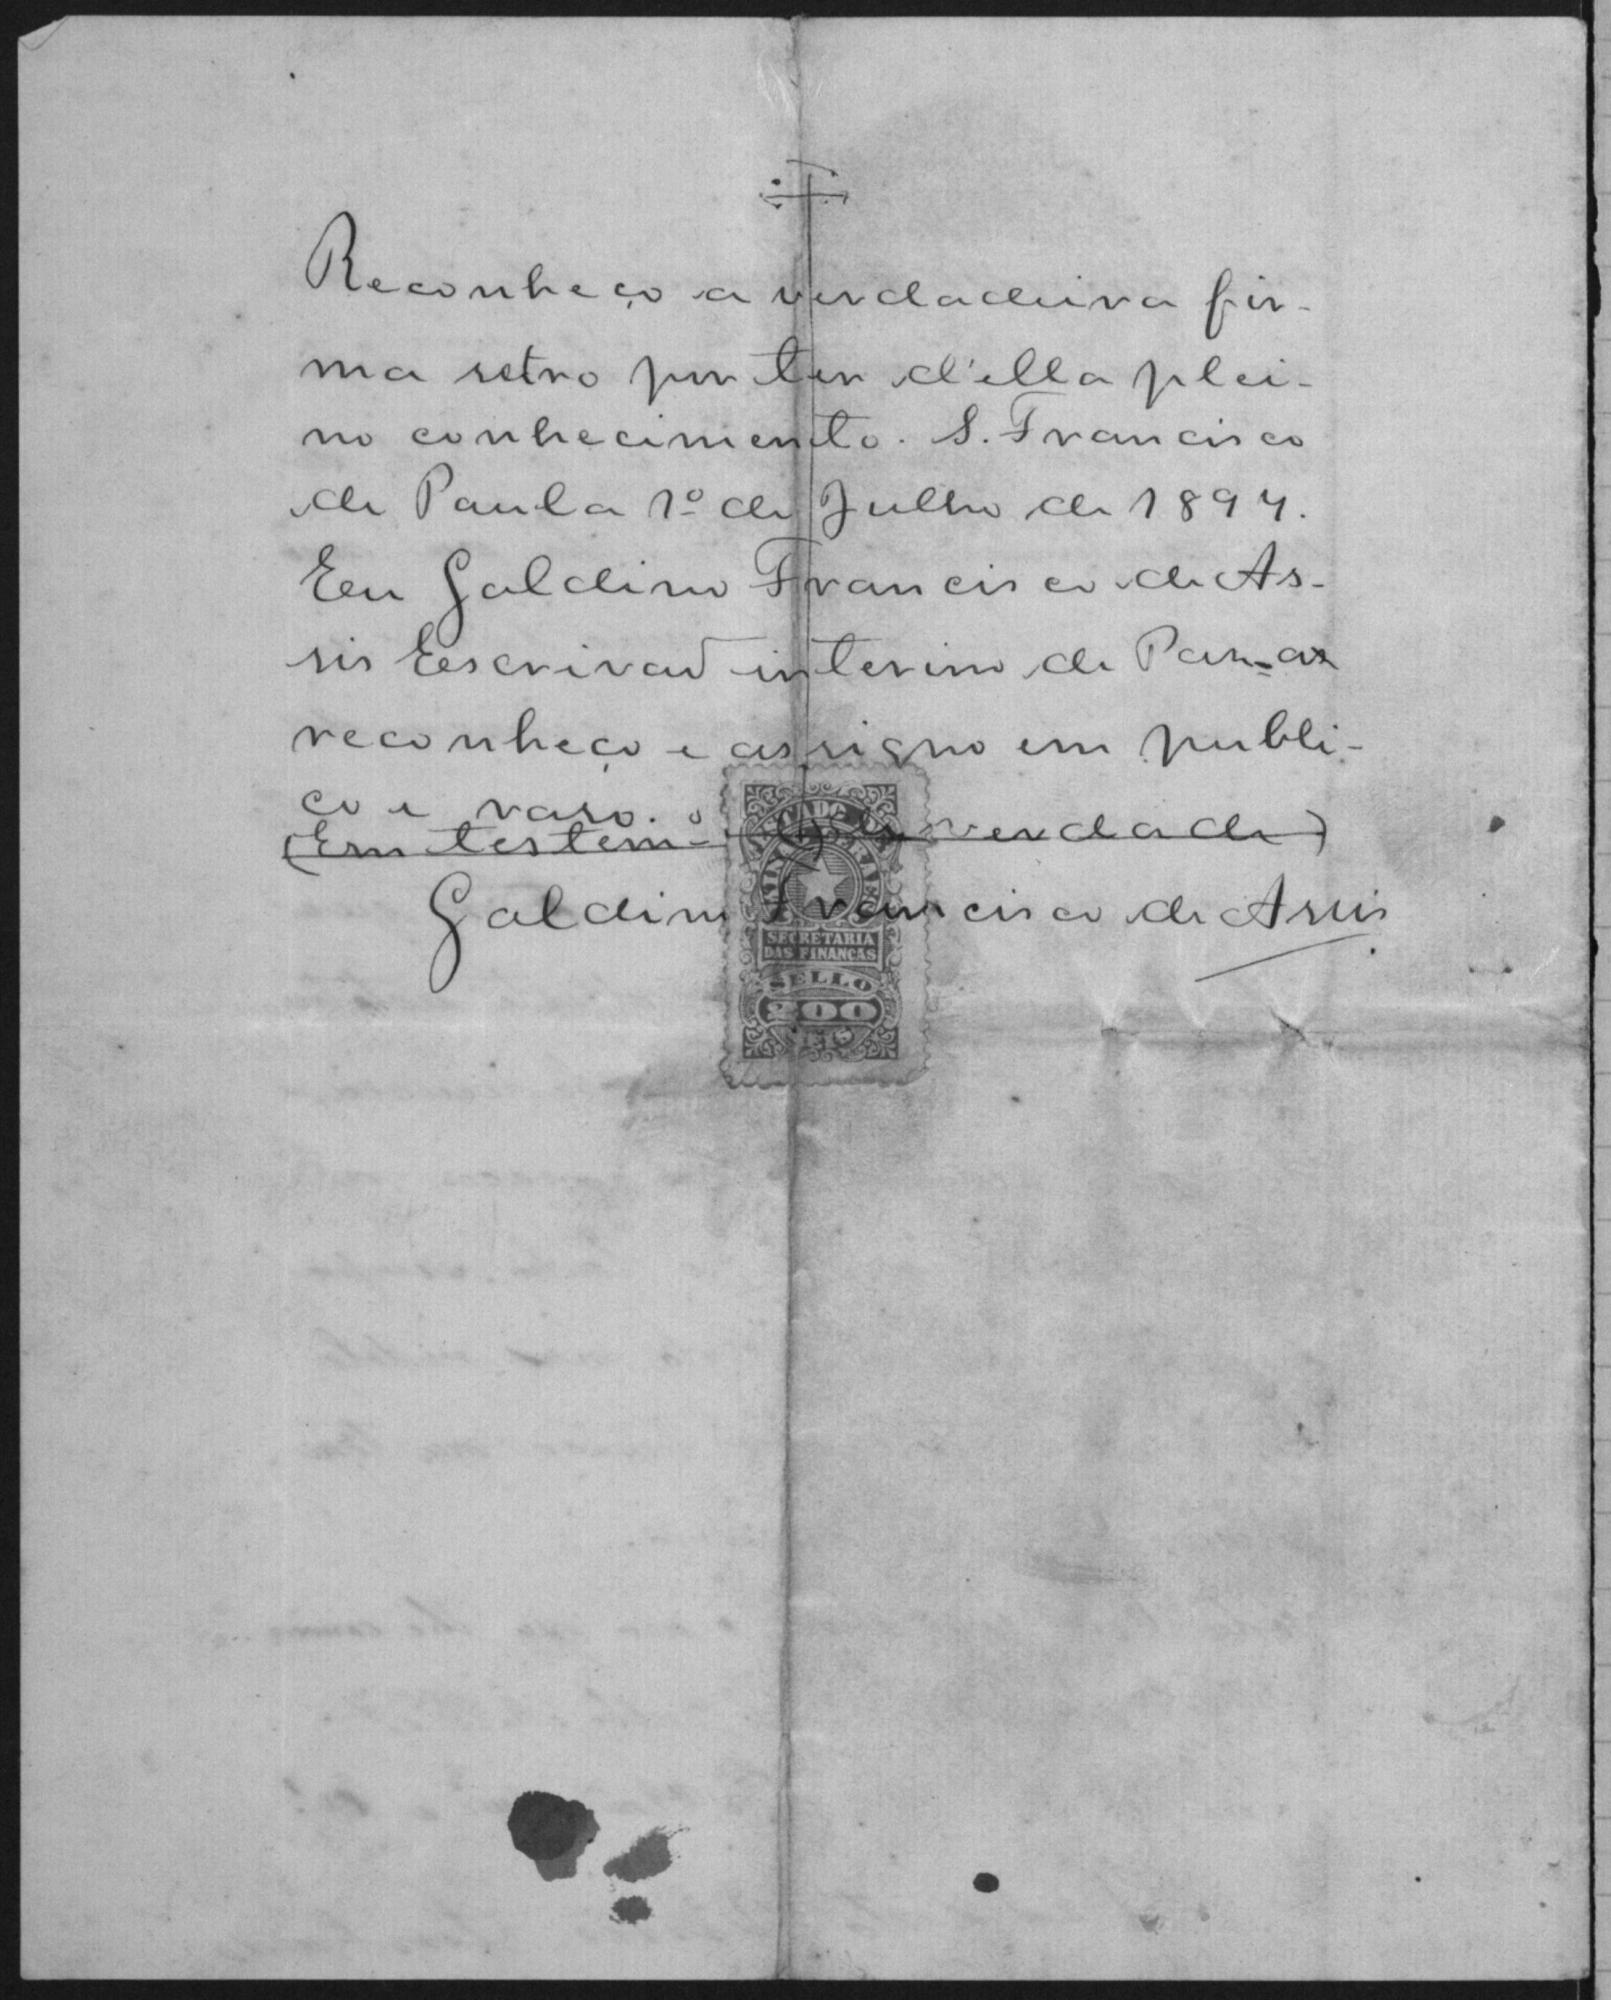 Reconheço a verdadeira fir-
ma retro por ter d'ella plei-
no conhecimento. S. Francisco
de Paula 1º de Julho de 1894.
Eu Galdino Francisco de As-
sis Eescrivaõ interino de Paz
reconheço e assigno em publi-
co e raso.
(Em testemº de verdade)
Galdino Francisco de Assis
ESTADO DE
MINAS GERAES
SECRETARIA
DAS FINANÇAS
SELLO
200
REIS